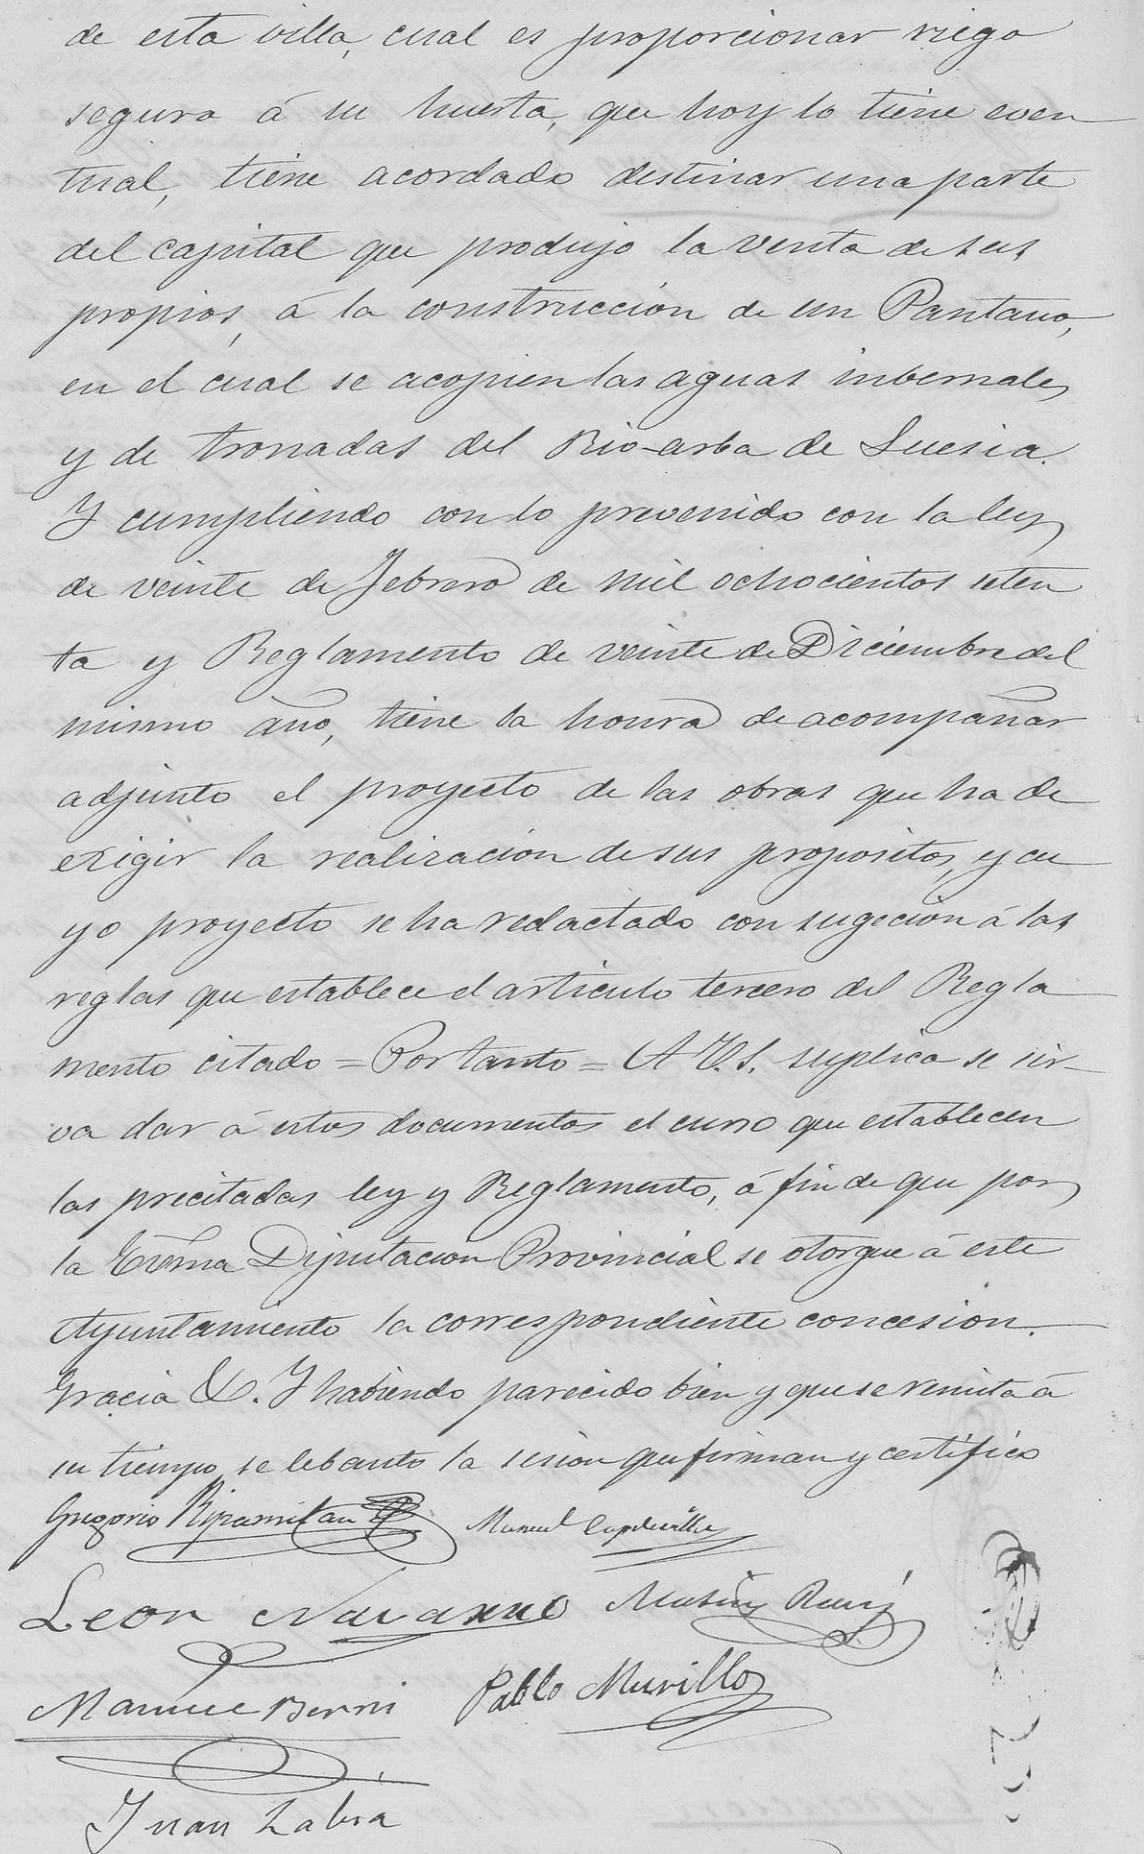 de esta villa, cual es proporcionar riego
seguro á su huerta, que hoy lo tiene even
tual, tiene acordado destinar una parte
del capital que produjo la venta de sus
propios, á la construccion de un Pantano,
en el cual se acopien las aguas inbernales
y de tronadas del Rio-arba de Luesia.
Y cumpliendo con lo prevenido con la ley
de veinte de Febrero de mil ochocientos seten
ta y Reglamento de veinte de Diciembre del
mismo año, tiene la honra de acompañar
adjunto el proyecto de las obras que ha de
exigir la realizacion de sus propositos, y cu
yo proyecto se ha redactado con sugecion á las
reglas que establece el articulo tercero del Regla
mento citado = Por tanto = A V.S. suplica se sir-
va dar á estos documentos el curso que establecen
las precitadas ley y Reglamento, á fin de que por
la Exma Diputacion Provincial se otorgue á este
Ayuntamiento la correspondiente concesion.
Gracia &. Y habiendo parecido bien y que se remita á
su tiempo, se lebanto la sesion que firman y certifico
Gregorio Ripamilan Manuel Capdevilla
Leon Navarro Ruiz
Manuel Berni Pablo Murillo
Juan Labra